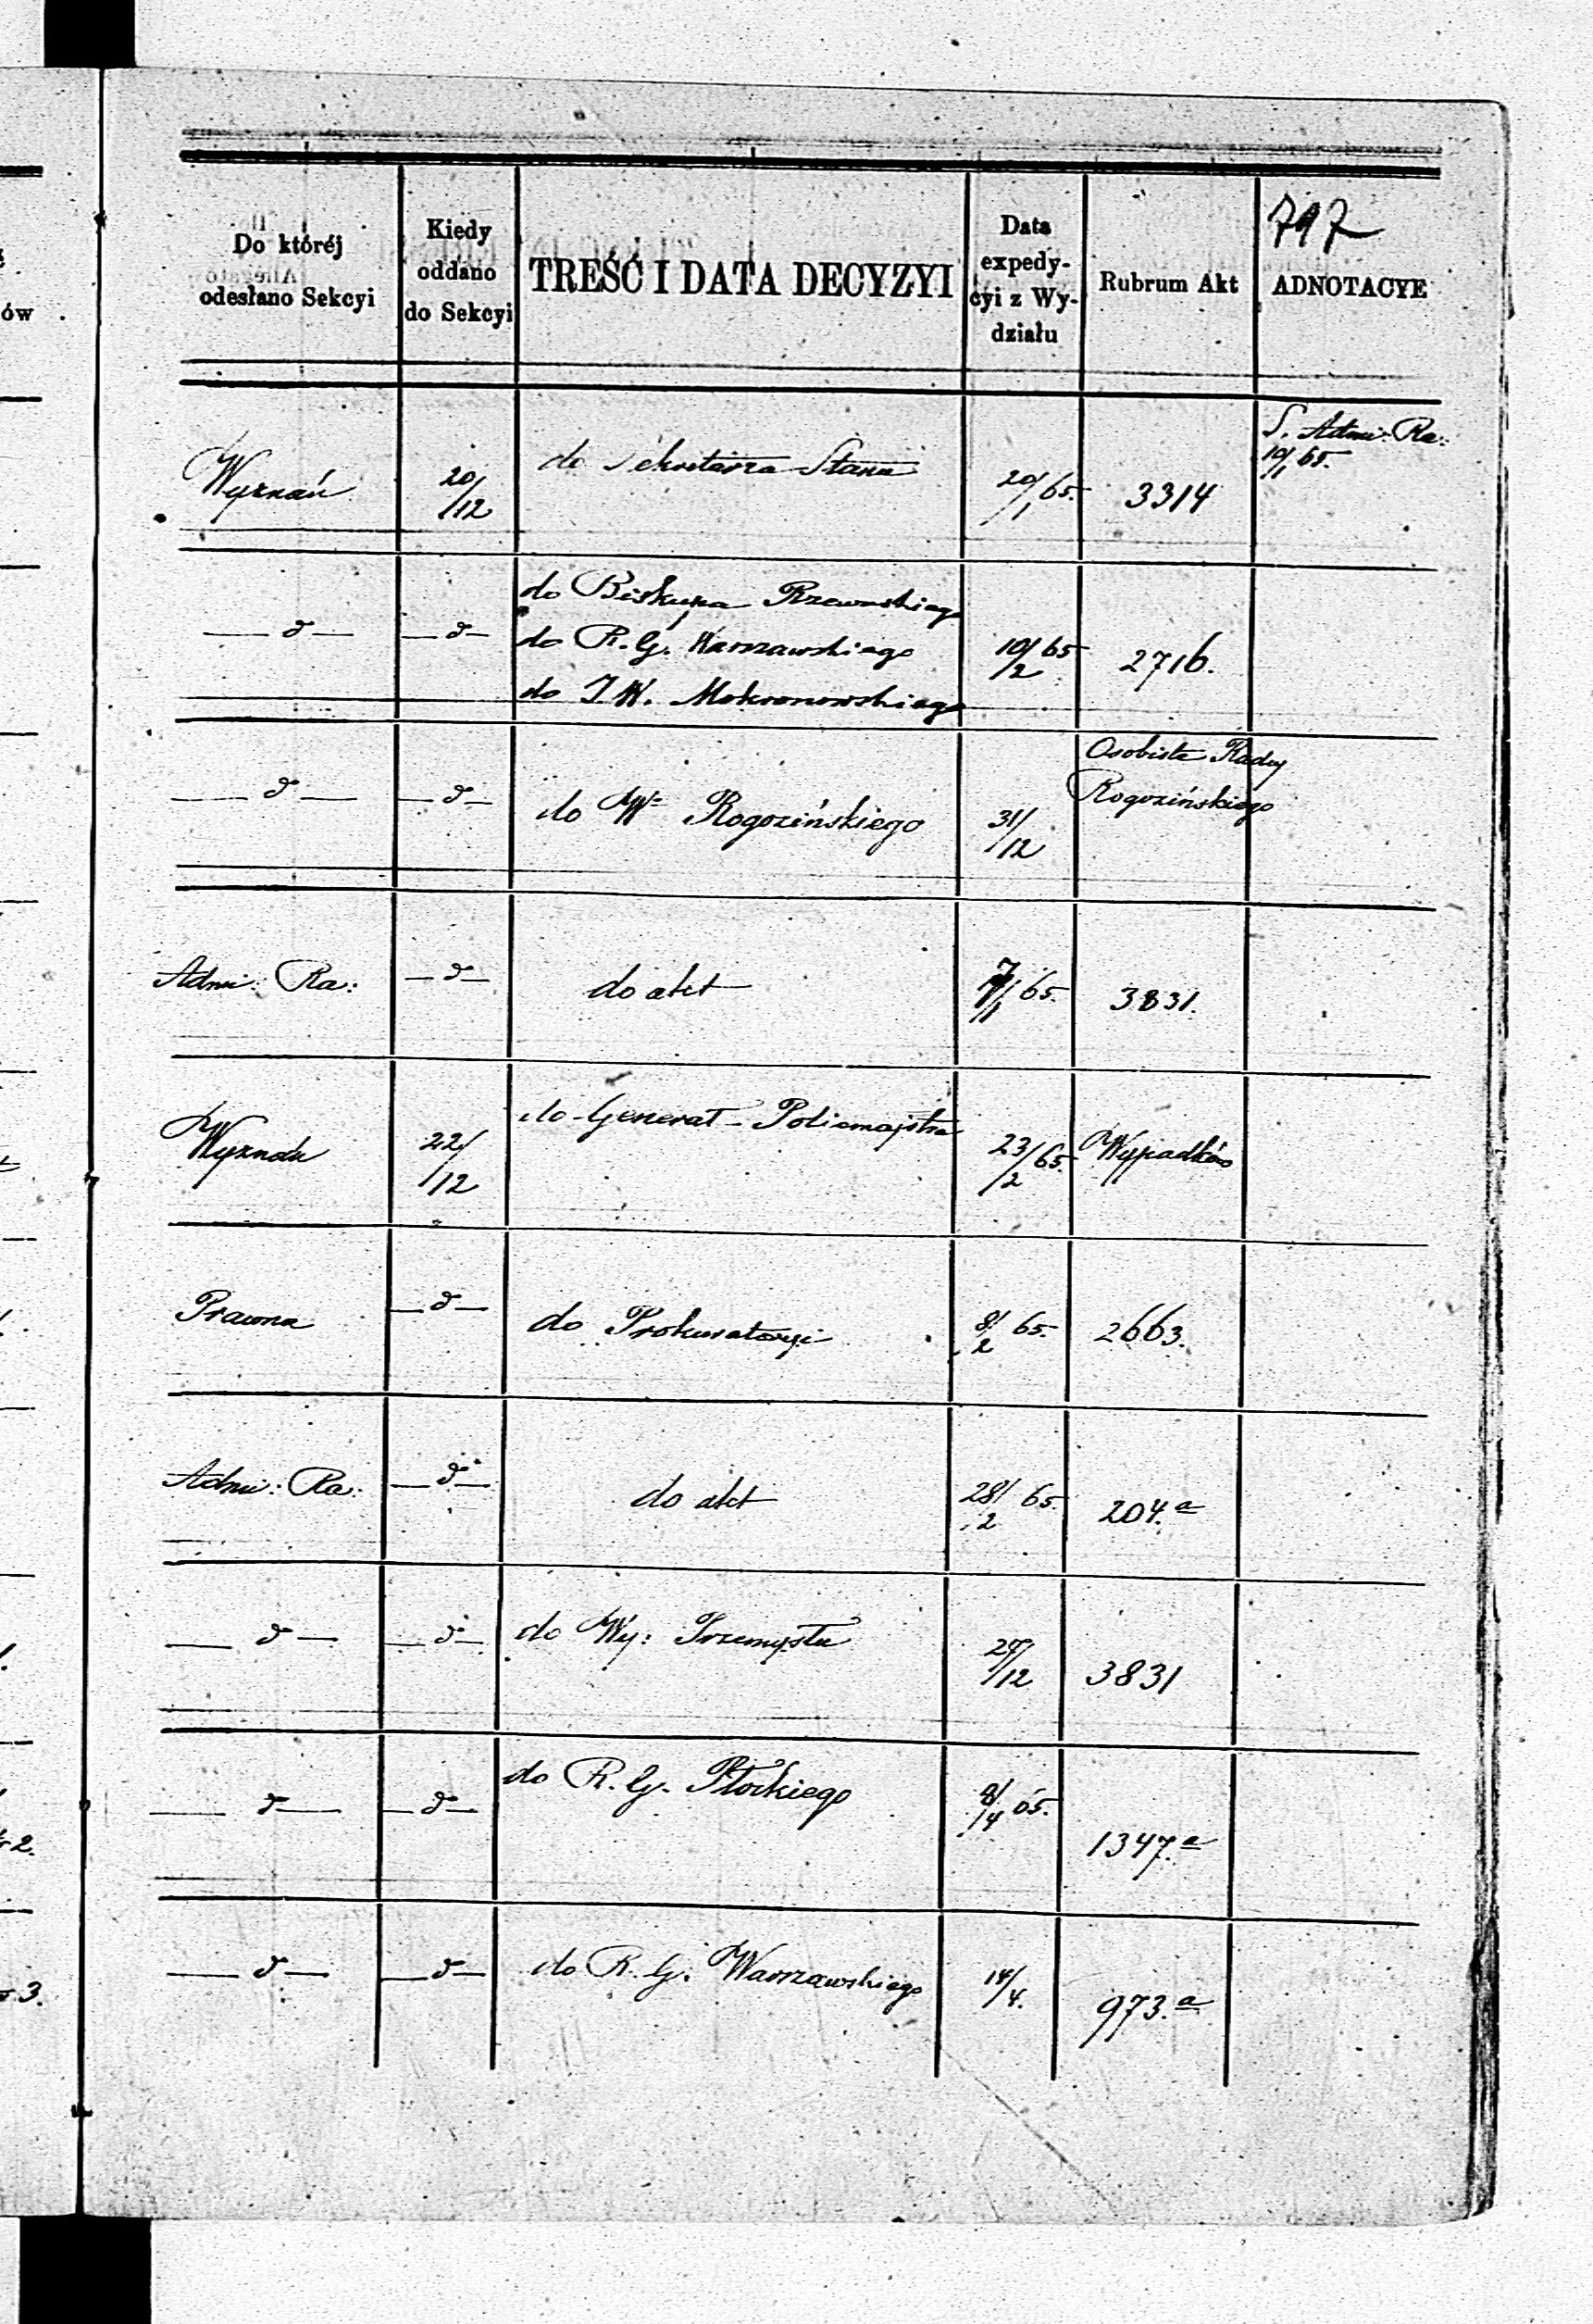 797
Do któréj
odesłano Sekcyi
Kiedy
oddano
do Sekcyi
TREŚĆ I DATA DECYZYI
Data
expedy-
cyi z Wy-
działu
Rubrum Akt
ADNOTACYE
Wyznań
20/12
do Sekretarza Stanu
20/1 65.
3314
S. Admi: Ra:
10/1 65.
— d —
— d —
do Biskupa Rzewuskiego
do R. G. Warszawskiego
do J. W. Mokronowskiego
10/2 65
2716.
— d —
— d —
do W° Rogozińskiego
31/12
Osobiste Radcy
Rogozińskiego
Admi: Ra:
— d —
do akt
7/1 65.
3831.
22/12
do Generał-Policmajstra
23/2 65.
Wypadków
Prawna
— d —
do Prokuratoryi
8/2 65.
2663.
Admi: Ra:
— d —
do akt
28/2 65.
204.a
— d —
— d —
do Wy: Przemysłu
/12
3831
— d —
— d —
do R. G. Płockiego
/4 65.
1347.a
— d —
— d —
do R. G. Warszawskiego
14/4.
973.a
ów
2.
3.